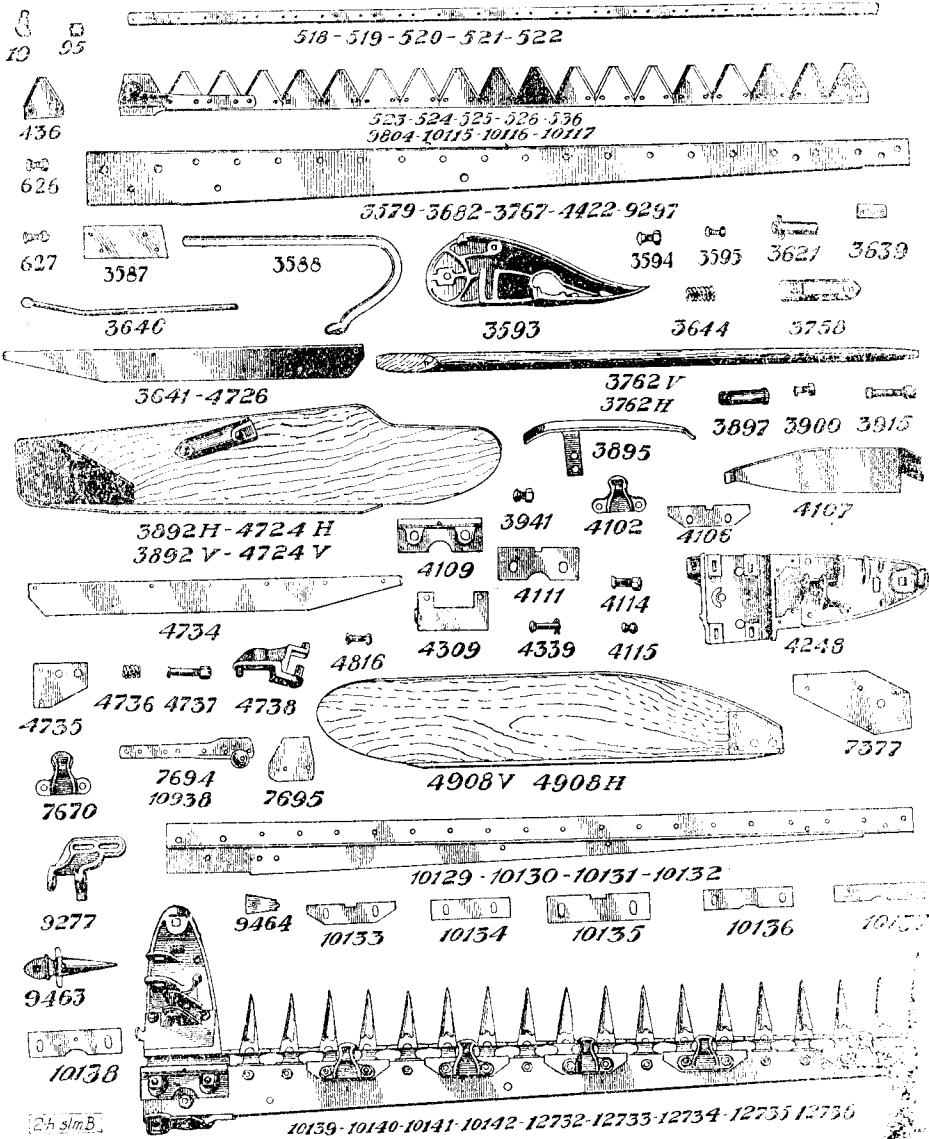 518-519-520-521-522
19 95
436
523-524-525-526-536
9804-10115-10116-10117
626
3579-3682-3767-4422-9297
627 3587 3588 3593 3594 3595 3621 3639
3640 3644 3758
3641-4726
3762 V
3762 H
3897 3900 3915
3895
3892 H-4724 H
3892 V-4724 V
3941 4102 4106 4107
4109 4111 4114
4734
4309 4339 4115 4248
4816
4735 4736 4737 4738
7377
7670 7694 7695
10938
4908 V 4908 H
10129-10130-10131-10132
9277 9464 10133 10134 10135 10136
9463
10138
2-h slm B.
10139-10140-10141-10142-12732-12733-12734-12735 12736